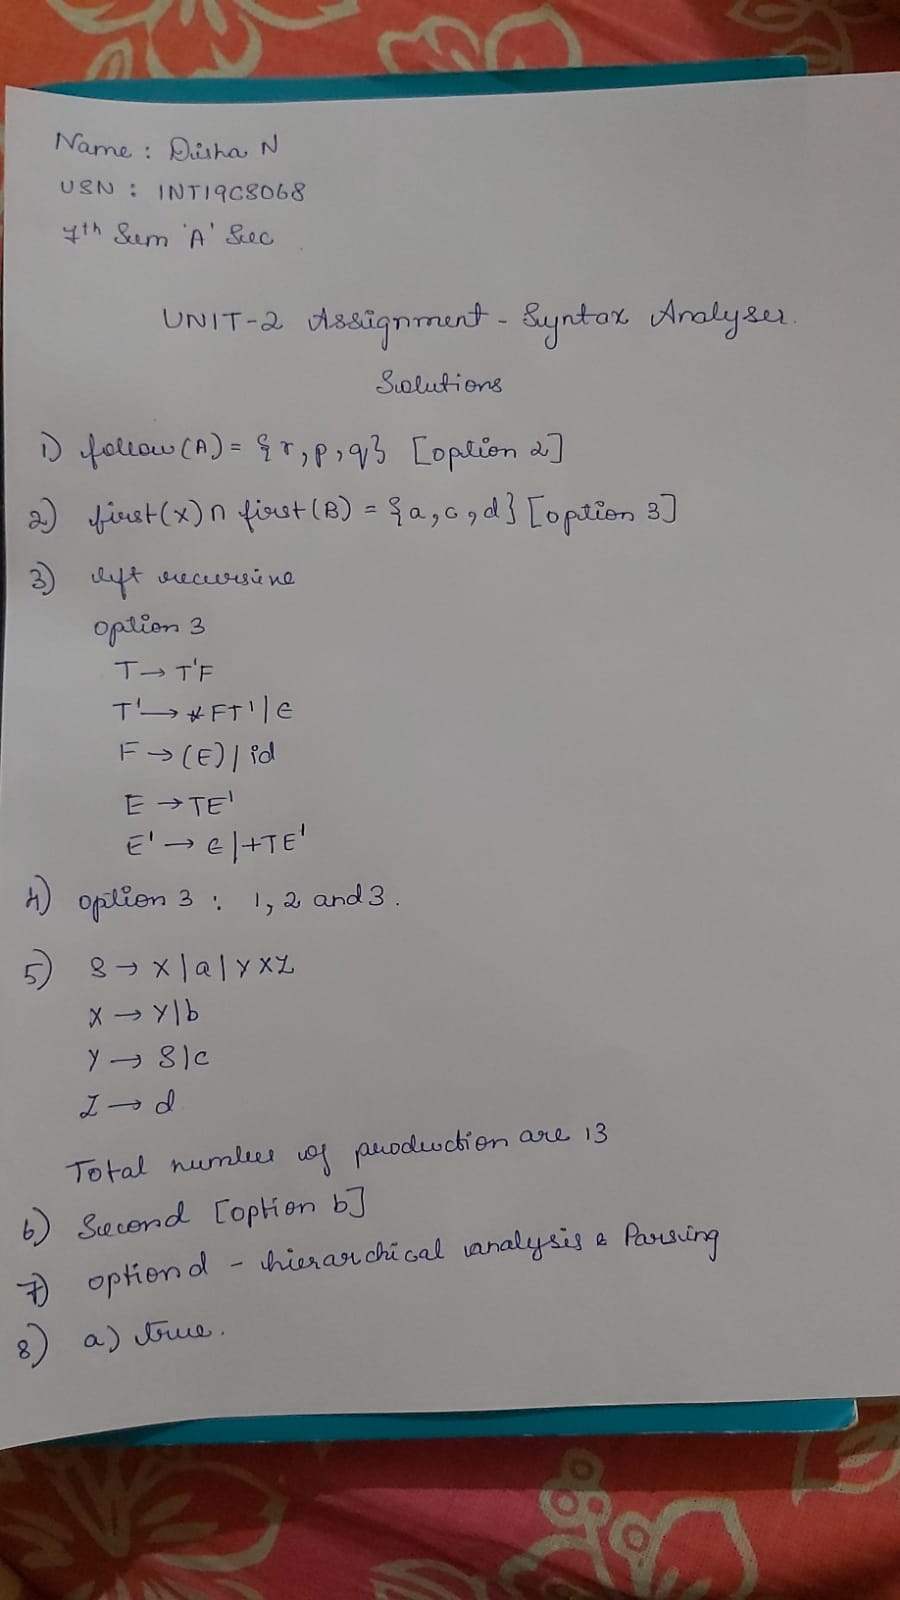 Name : Disha N
USN : 1NT19CS068
7th Sem 'A' Sec
UNIT-2 Assignment - Syntax Analyser.
Solutions
1) follow(A) = {r, p, q} [option 2]
2) first(X) ∩ first(B) = {a, c, d} [option 3]
3) left recursive
option 3
T → T'F
T' → *FT' | ∈
F → (E) | id
E → TE'
E' → ∈ | +TE'
4) option 3 : 1, 2 and 3.
5) S → X | a | YXZ
X → Y | b
Y → S | c
Z → d
Total number of production are 13
6) Second [option b]
7) option d - hierarchical analysis & Parsing
8) a) true.